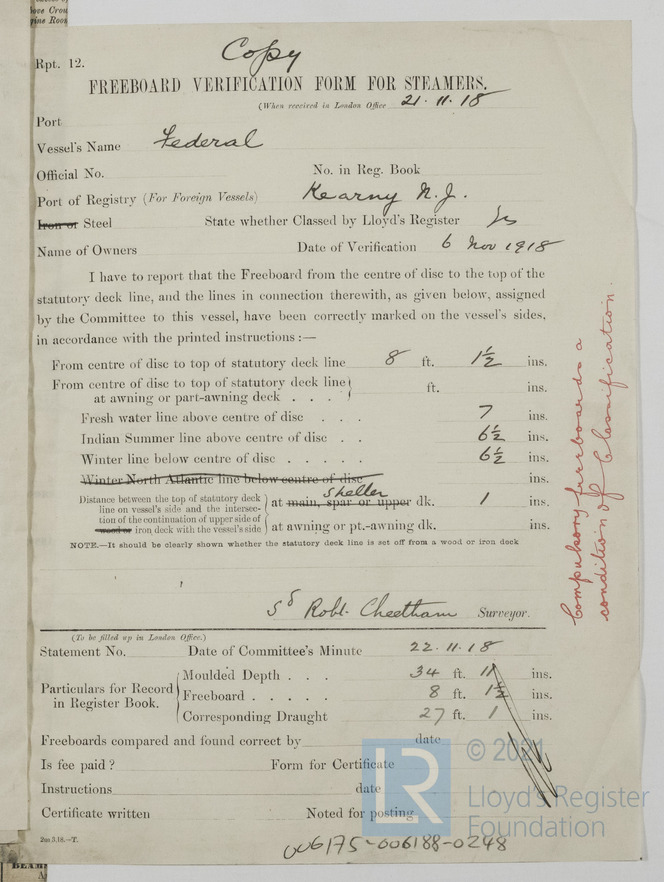 ove Crow
rine Roo
Copy
Rpt. 12.
FREEBOARD VERIFICATION FORM FOR STEAMERS.
(When received in London Office 21.11.18
Port
Vessel's Name Federal
Official No. No. in Reg. Book
Port of Registry (For Foreign Vessels) Kearny N.J.
Iron or Steel State whether Classed by Lloyd's Register Yes
Name of Owners Date of Verification 6 Nov 1918
I have to report that the Freeboard from the centre of disc to the top of the
statutory deck line, and the lines in connection therewith, as given below, assigned
by the Committee to this vessel, have been correctly marked on the vessel's sides,
in accordance with the printed instructions :—
From centre of disc to top of statutory deck line 8 ft. 1½ ins.
From centre of disc to top of statutory deck line
at awning or part-awning deck . . . ft. ins.
Fresh water line above centre of disc . . . 7 ins.
Indian Summer line above centre of disc . . 6½ ins.
Winter line below centre of disc . . . . . 6½ ins.
Winter North Atlantic line below centre of disc ins.
Distance between the top of statutory deck
line on vessel's side and the intersec-
tion of the continuation of upper side of
wood or iron deck with the vessel's side
shelter
at main, spar or upper dk. 1 ins.
at awning or pt.-awning dk. ins.
NOTE.—It should be clearly shown whether the statutory deck line is set off from a wood or iron deck
Sd Robt. Cheetham Surveyor.
Compulsory freeboards a
condition of Classification.
(To be filled up in London Office.)
Statement No. Date of Committee's Minute 22.11.18
Particulars for Record
in Register Book.
Moulded Depth . . . 34 ft. 11 ins.
Freeboard . . . . . 8 ft. 1½ ins.
Corresponding Draught 27 ft. 1 ins.
Freeboards compared and found correct by date
Is fee paid ? Form for Certificate
Instructions date
Certificate written Noted for posting
2m 5,18.—T.
006175-006188-0248
BEAM
LR
© 2021
Lloyd's Register
Foundation